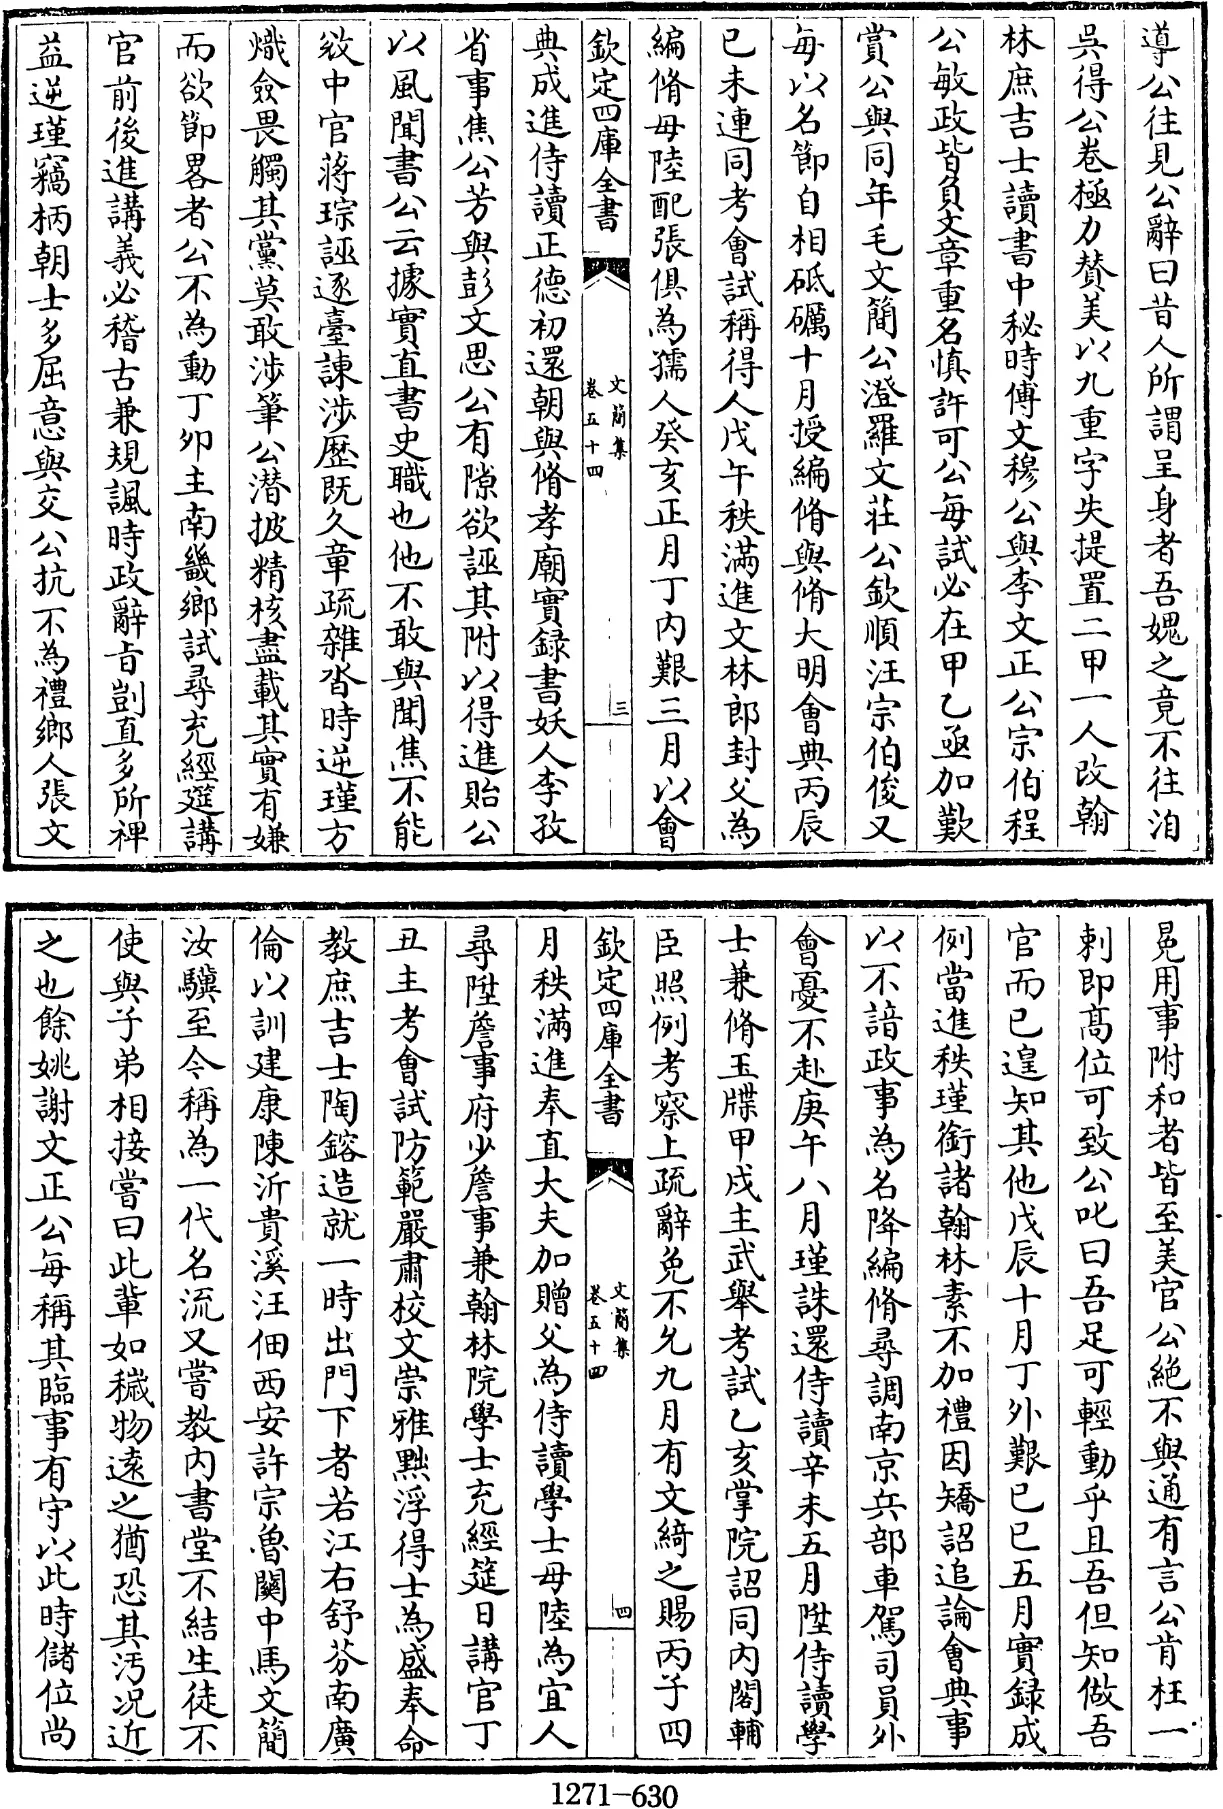 導公往見公辭曰昔人所謂呈身者吾媿之竟不往洎
吳得公卷極力贊美以九重字失提置二甲一人改翰
林庶吉士讀書中秘時傅文穆公與李文正公宗伯程
公敏政皆負文章重名慎許可公每試必在甲乙亟加歎
賞公與同年毛文簡公澄羅文莊公欽順汪宗伯俊又
每以名節自相砥礪十月授編脩與脩大明會典丙辰
已未連同考會試稱得人戊午秩滿進文林郎封父為
編脩母陸配張俱為孺人癸亥正月丁内艱三月以會
欽定四庫全書
文簡集
卷五十四
三
典成進侍讀正德初還朝與脩孝廟實録書妖人李孜
省事焦公芳與彭文思公有隙欲誣其附以得進貽公
以風聞書公云據實直書史職也他不敢與聞焦不能
敓中官蔣琮誣逐臺諫涉歷既久章疏雜沓時逆瑾方
熾僉畏觸其黨莫敢涉筆公潜披精核盡載其實有嫌
而欲節畧者公不為動丁卯主南畿鄉試尋充經筵講
官前後進講義必稽古兼規諷時政辭旨剴直多所裨
益逆瑾竊柄朝士多屈意與交公抗不為禮鄉人張文
冕用事附和者皆至美官公絶不與通有言公肯枉一
刺即髙位可致公叱曰吾足可輕動乎且吾但知做吾
官而已遑知其他戊辰十月丁外艱已巳五月實録成
例當進秩瑾銜諸翰林素不加禮因矯詔追論會典事
以不諳政事為名降編脩尋調南京兵部車駕司員外
會憂不赴庚午八月瑾誅還侍讀辛未五月陞侍讀學
士兼脩玉牒甲戌主武舉考試乙亥掌院詔同内閣輔
臣照例考察上疏辭免不允九月有文綺之賜丙子四
欽定四庫全書
文簡集
卷五十四
四
月秩滿進奉直大夫加贈父為侍讀學士母陸為宜人
尋陞詹事府少詹事兼翰林院學士充經筵日講官丁
丑主考會試防範嚴肅校文崇雅黜浮得士為盛奉命
教庶吉士陶鎔造就一時出門下者若江右舒芬南廣
倫以訓建康陳沂貴溪汪佃西安許宗魯關中馬文簡
汝驥至今稱為一代名流又嘗教内書堂不結生徒不
使與子弟相接嘗曰此輩如穢物遠之猶恐其汚况近
之也餘姚謝文正公每稱其臨事有守以此時儲位尚
1271-630